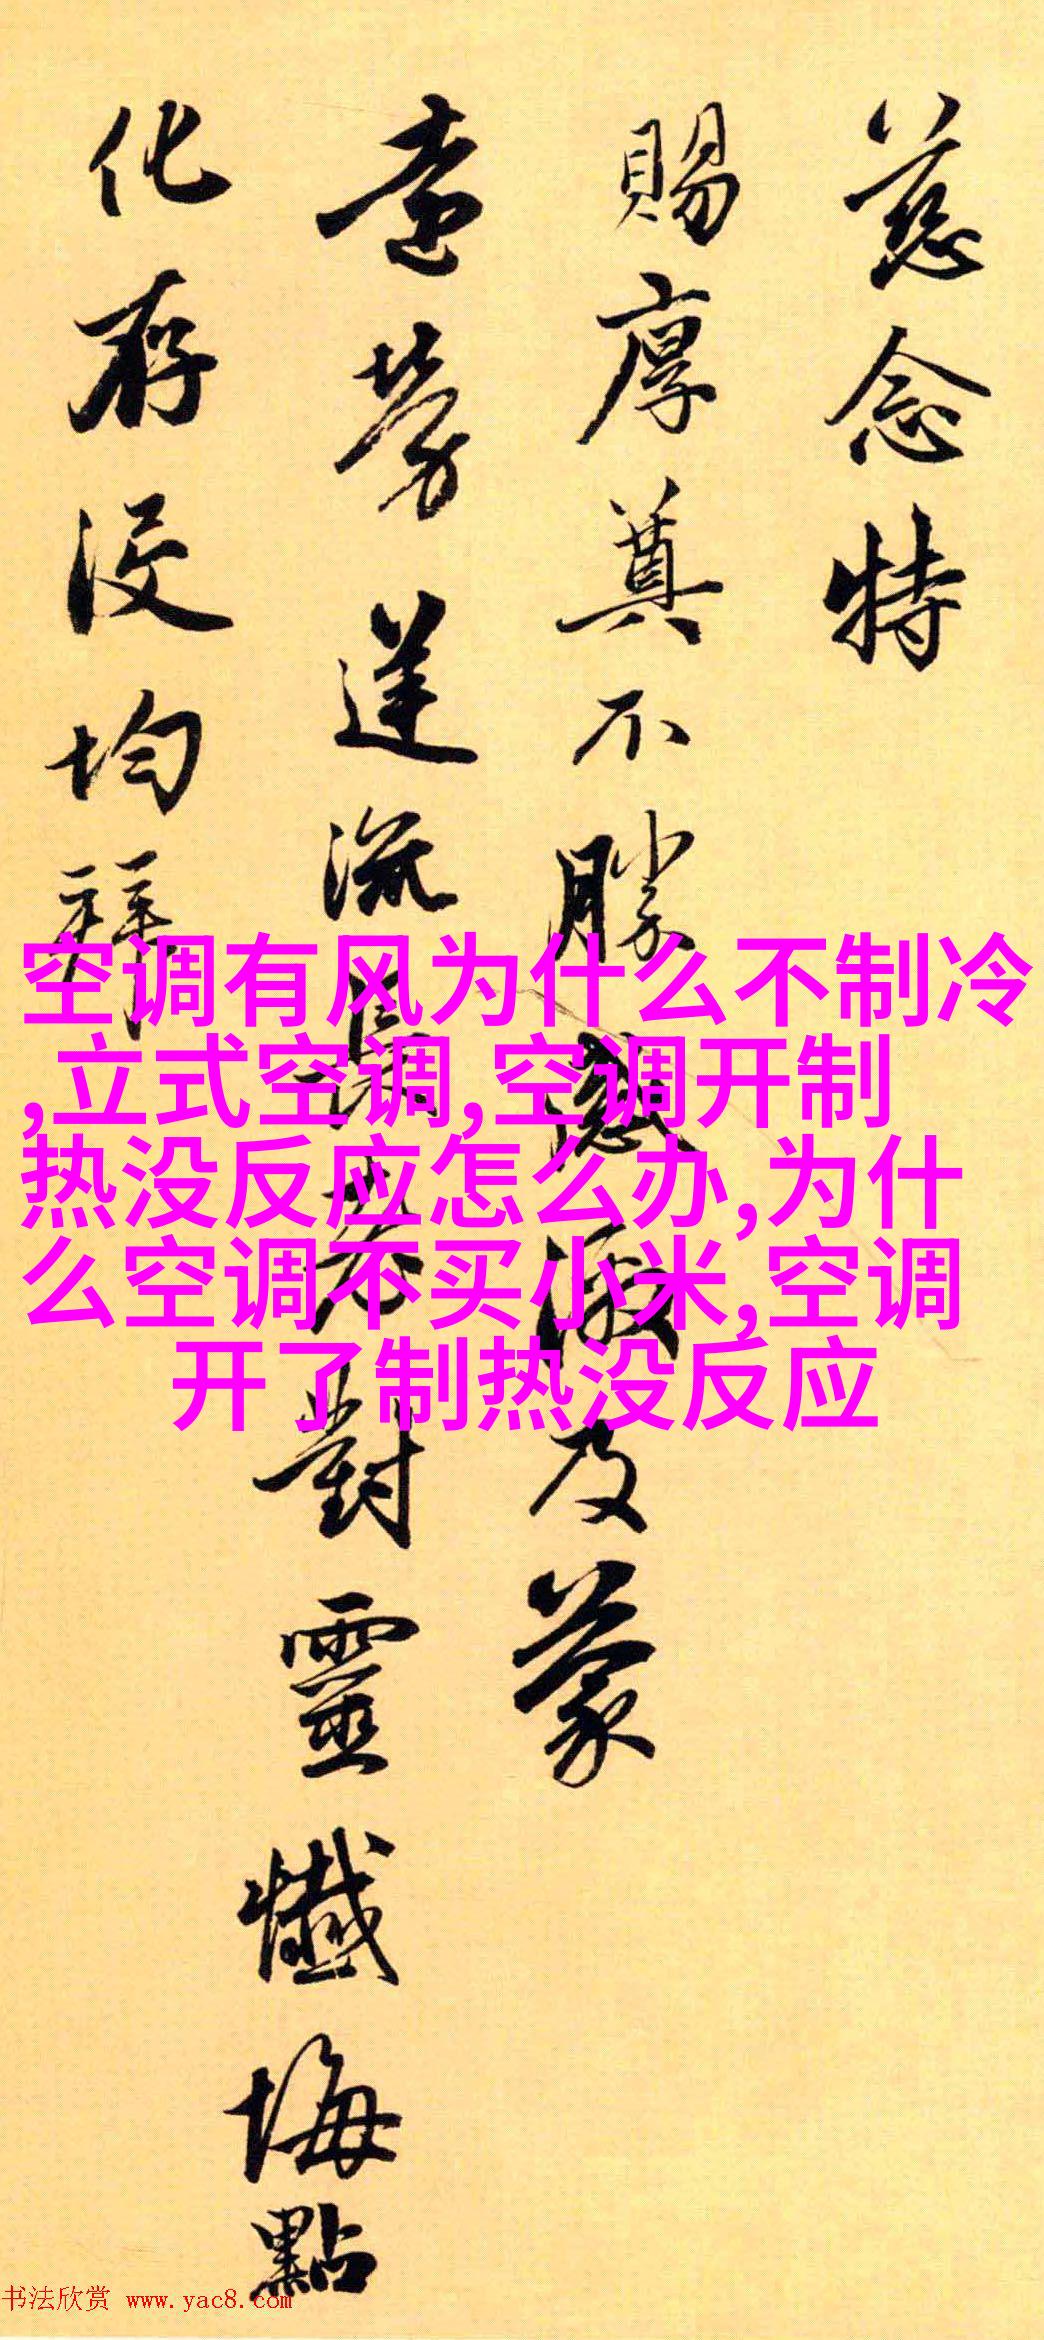 慈念特
賜厚奠不勝感激及蒙
遠勞蓮流
對靈懺悔點
化存沒均拜
空调有风为什么不制冷
,立式空调,空调开制
热没反应怎么办,为什
么空调不买小米,空调
开了制热没反应
书法欣赏 www.yac8.com